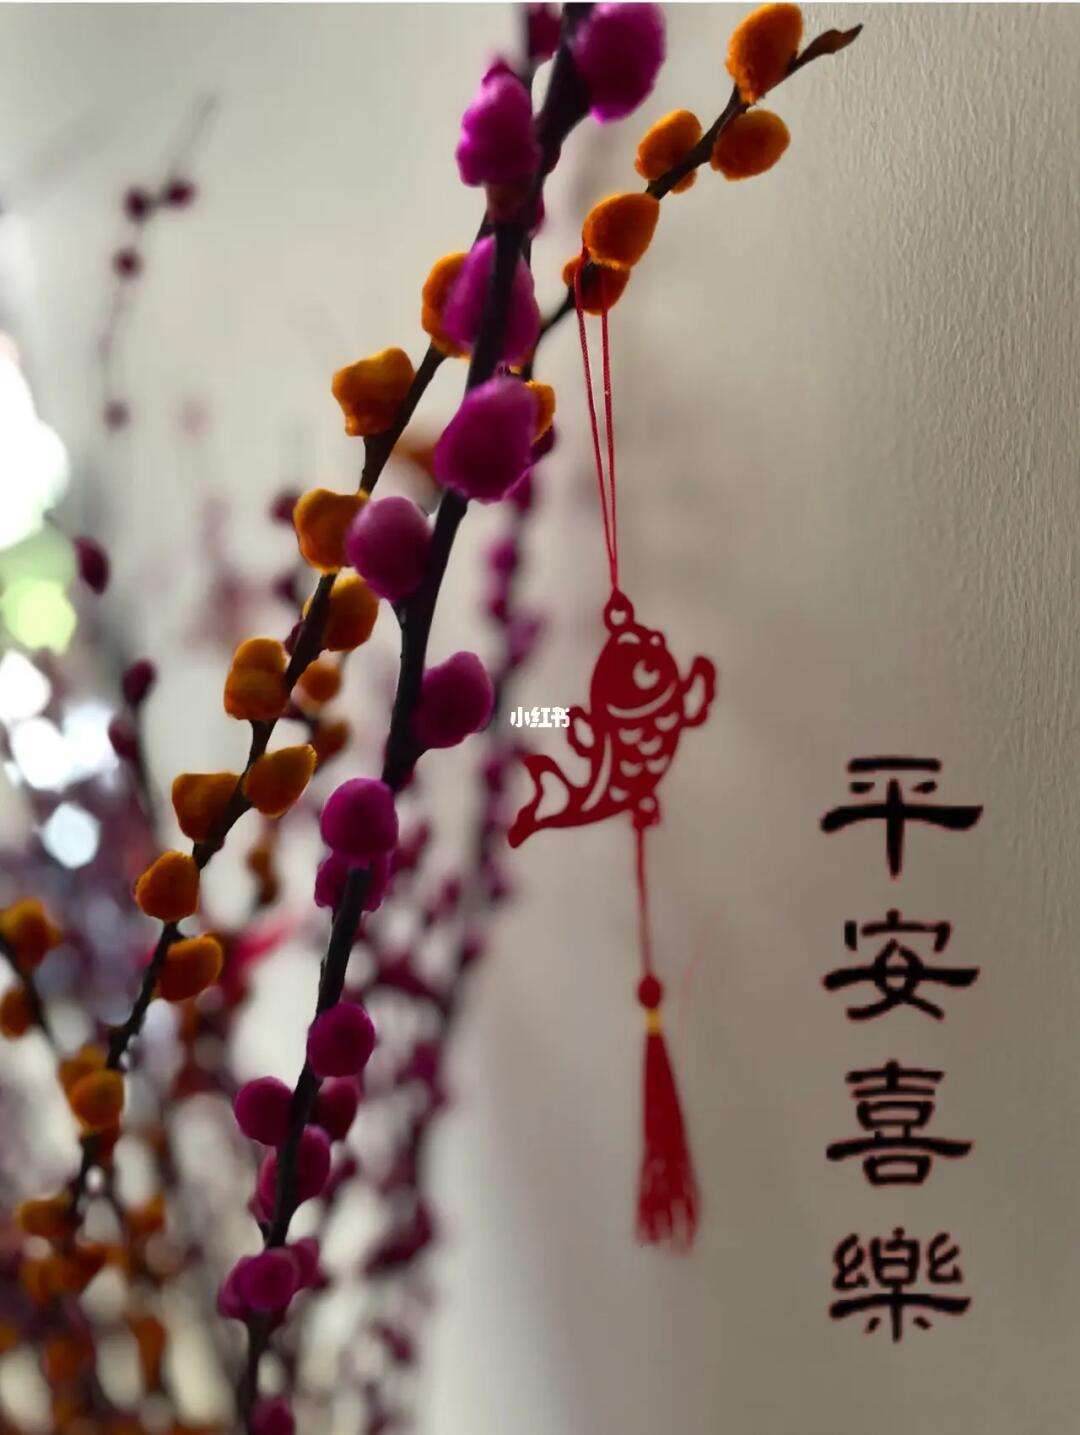 小红书
平安喜樂